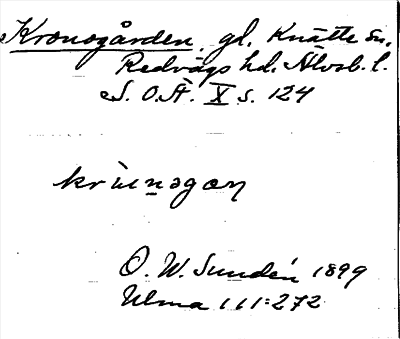 Kronogården, gl. Knätte sn.
Redvägs hd. Älvsb. l.
S. O. Ä. X s. 124
O. W. Sundén 1899
Ulma 111:272